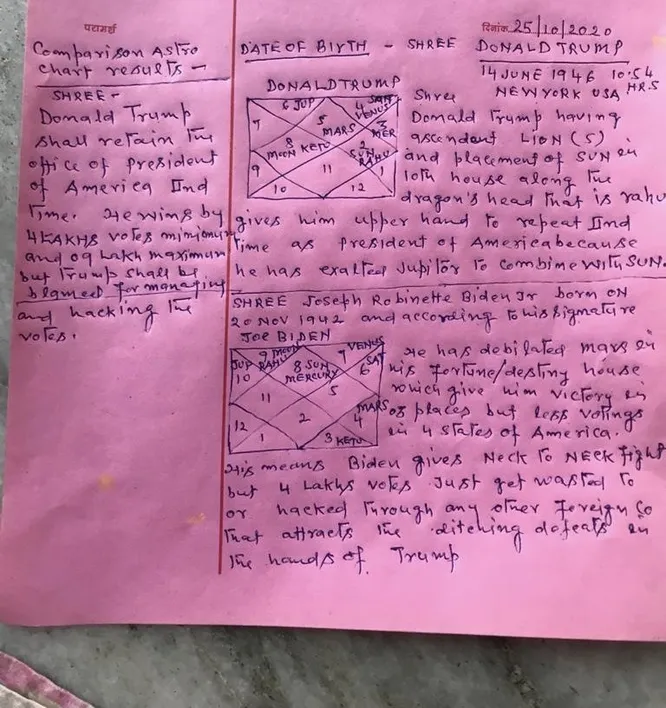 परामर्श
दिनांक 25/10/2020
Comparison Astro
chart results -
SHREE -
Donald Trump
shall retain the
office of President
of America IInd
Time. He wins by
4 LAKHS votes minimum
and 09 Lakh maximum
but Trump shall be
blamed for managing
and hacking the
votes.
DATE OF BIRTH - SHREE DONALD TRUMP
14 JUNE 1946 10:54 HRS
NEWYORK USA
DONALD TRUMP
6 JUP
4 SAT
VENUS
7
5
MARS
3
MER
8
MOON KETU
2
SUN
RAHU
9
11
1
10
12
Shree
Donald Trump having
ascendent LION (5)
and placement of SUN in
10th house along the
dragon's head that is rahu
gives him upper hand to repeat IInd
time as President of America because
he has exalted Jupitor to combine with SUN.
SHREE Joseph Robinette Biden Jr born ON
20 NOV 1942 and according to his signature
JOE BIDEN
9 MOON
RAHU
7 VENUS
JUP
10
8 SUN
MERCURY
6 SAT
11
5
12
2
MARS
4
1
3 KETU
He has debilated mars in
his fortune/destiny house
which give him victory in
places but less votings
in 4 states of America.
This means Biden gives Neck to NECK fight
but 4 Lakhs votes Just get wasted to
or hacked through any other Foreign Co
that attracts the ditching defeats in
the hands of Trump